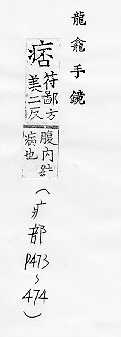 龍龕手鏡
痞
符鄙方
美二反
腹內結
病也
(疒部
P473
~
474)